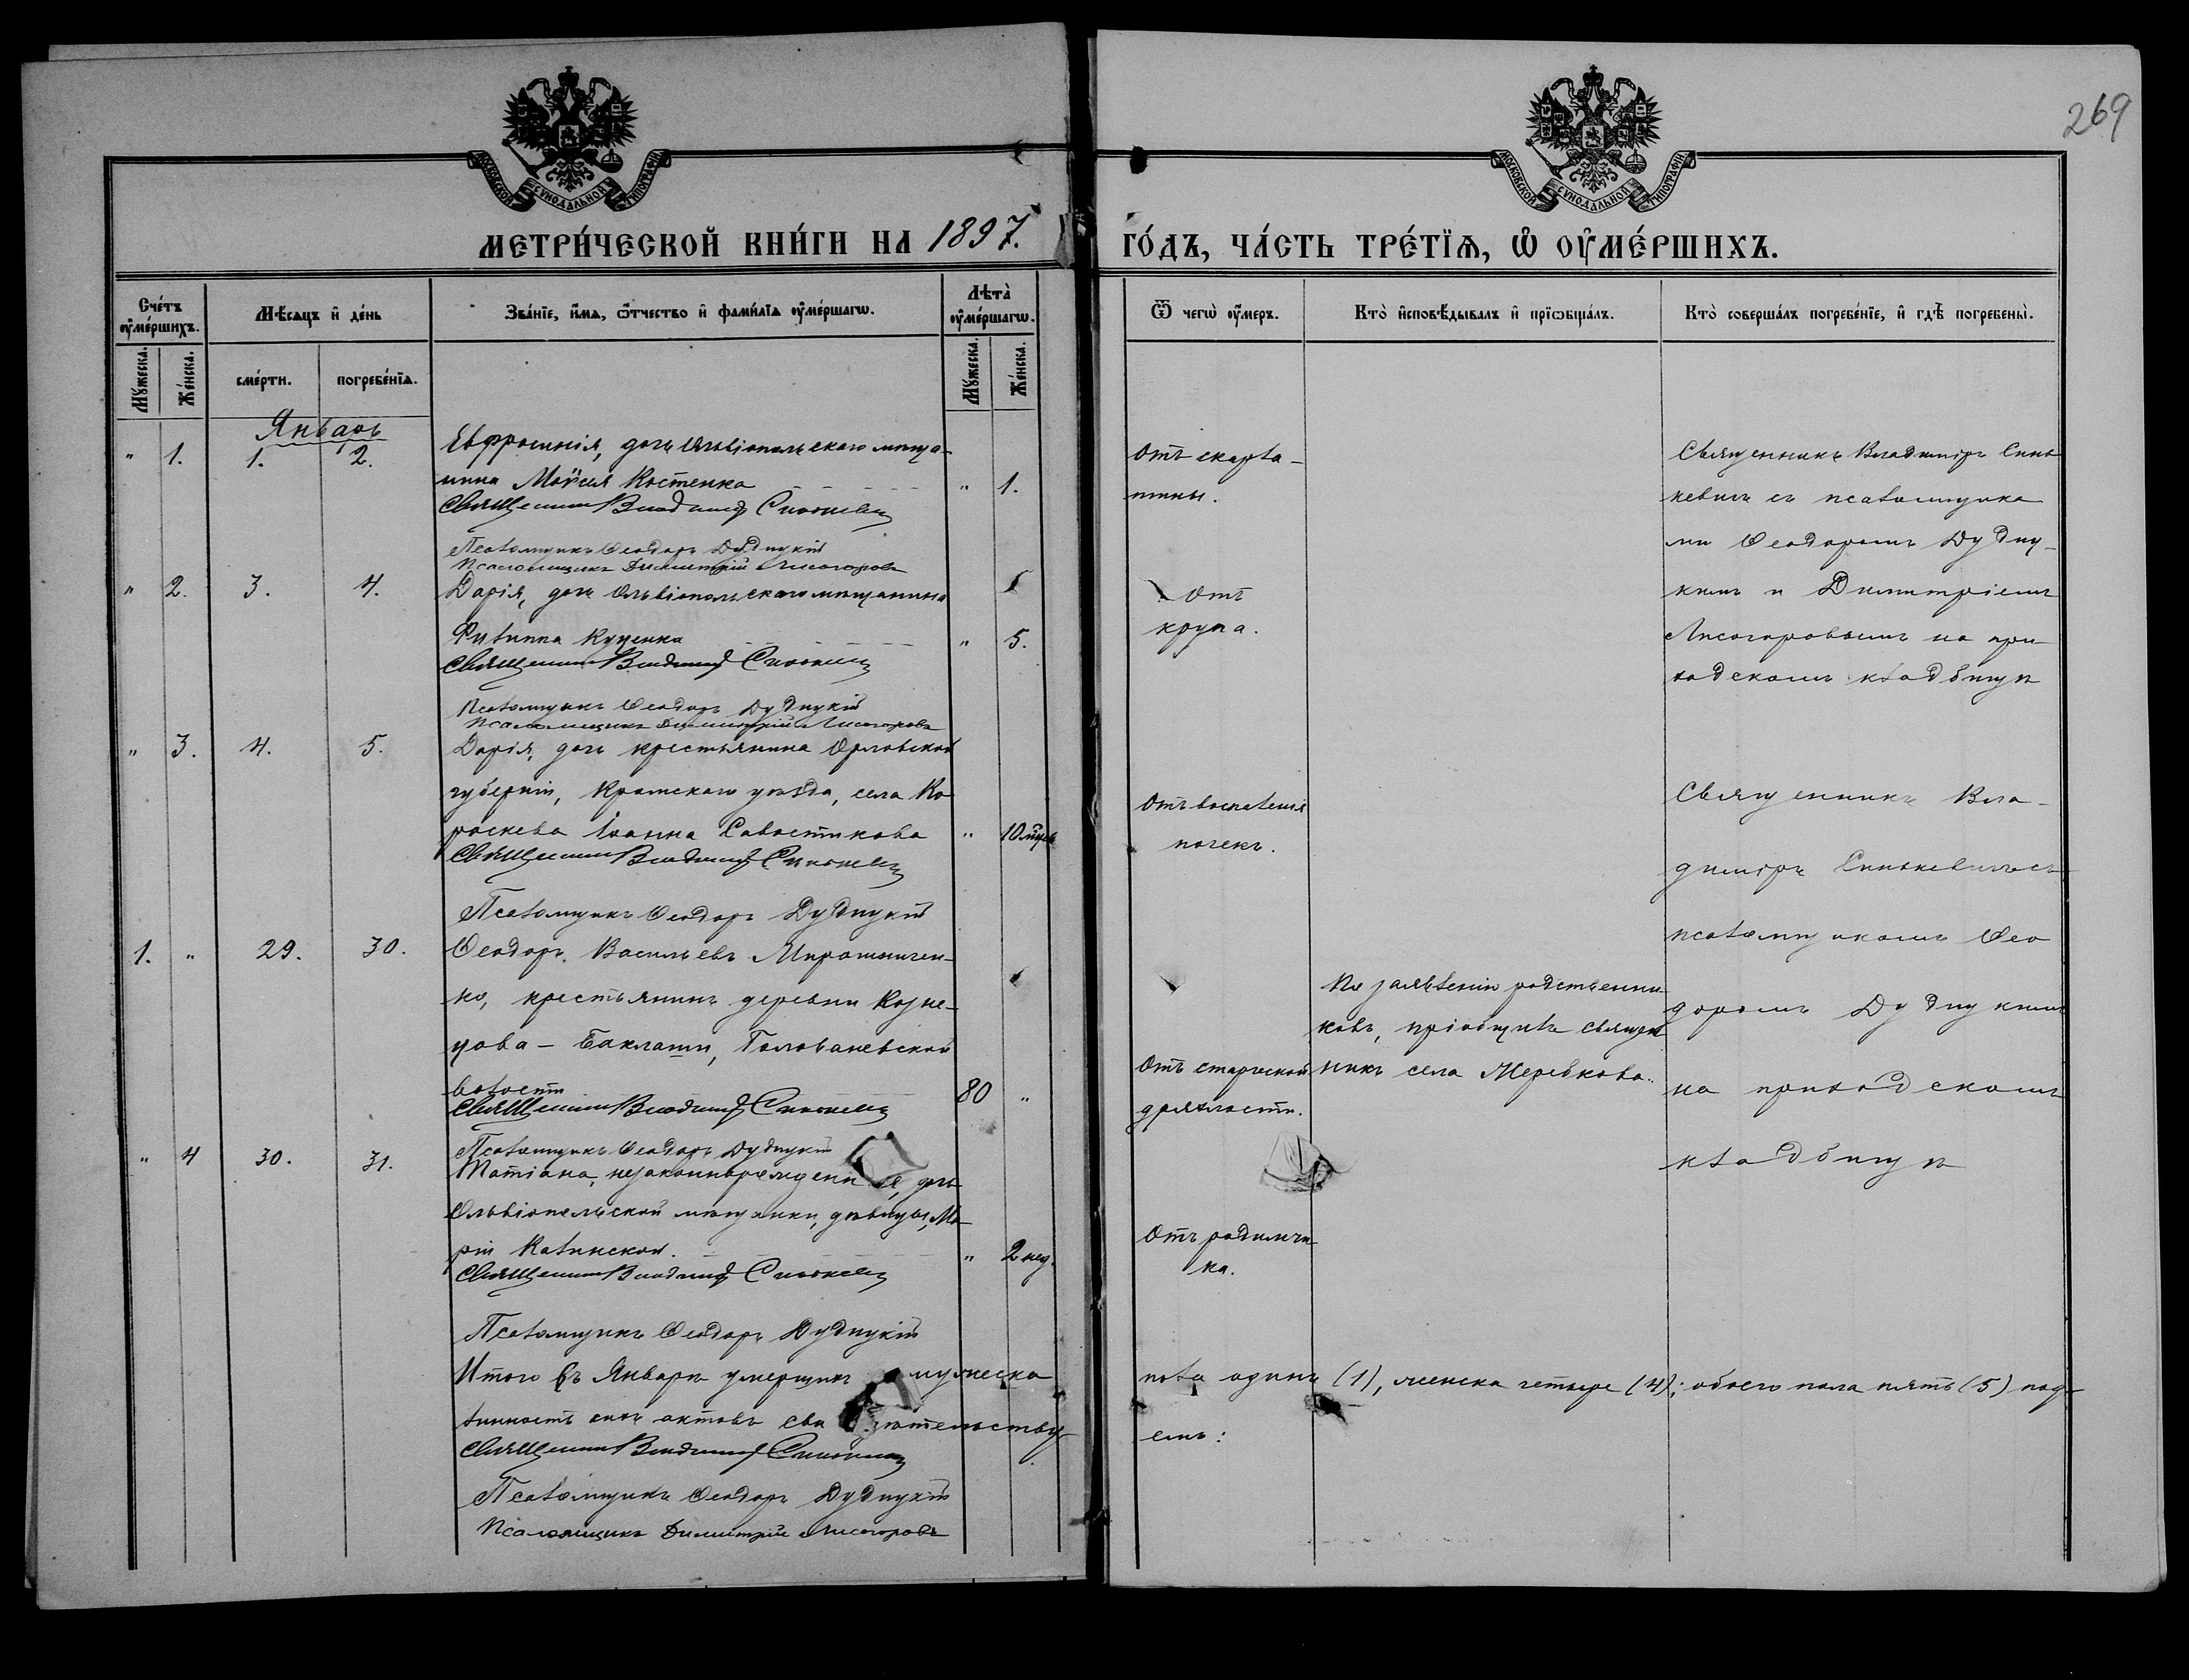 269
МОСКОВСКОЙ СУНОДАЛЬНОЙ ТИПОГРАФІИ
МОСКОВСКОЙ СУНОДАЛЬНОЙ ТИПОГРАФІИ
МЕТРИ́ЧЕСКОЙ КНИ́ГИ НА 1897.
ГО́ДЪ, ЧА́СТЬ ТРЕ́ТЇѦ, Ѡ ОУ҆МЕ́РШИХЪ.
Сче́тъ оу҆ме́ршихъ.
Мѣ́сѧцъ и҆ де́нь
Зва́нїе, и҆́мѧ, ѻ҆́тчество и҆ фами́лїѧ оу҆ме́ршагѡ.
Лѣта̀ оу҆ме́ршагѡ.
Ѿ чегѡ̀ оу҆́меръ.
Кто̀ и҆сповѣ́дывалъ и҆ прїѡбща́лъ.
Кто̀ соверша́лъ погребе́нїе, и҆ гдѣ̀ погребены̀.
Мꙋ́жеска.
Же́нска.
сме́рти.
погребе́нїѧ.
Мꙋ́жеска.
Же́нска.
Январь
" 1. 1. 2.
Евфросинія, дочь Ольвіопольскаго мѣща-
нина Моѵсея Костенка " 1.
Священникъ Владиміръ Синькевичъ
Псаломщикъ Ѳеодоръ Дудицкій
Псаломщикъ Димитрій Лисогоровъ
Отъ скарла-
тины.
Священникъ Владиміръ Синь
кевичъ съ псаломщика
ми Ѳеодоромъ Дудиц-
кимъ и Димитріемъ
Лисогоровымъ на при
ходскомъ кладбищѣ
" 2. 3. 4.
Дарія, дочь Ольвіопольскаго мѣщанина
Филиппа Куценка " 5.
Священникъ Владиміръ Синькевичъ
Псаломщикъ Ѳеодоръ Дудицкій
Псаломщикъ Димитрій Лисогоровъ
Отъ
крупа.
" 3. 4. 5.
Дарія, дочь крестьянина Орловской
губерніи, Кромскаго уѣзда, села Ко
роскева Іоанна Савостикова " 10 мѣсяц.
Священникъ Владиміръ Синькевичъ
Псаломщикъ Ѳеодоръ Дудицкій
Отъ воспаленія
почекъ.
Священникъ Вла-
диміръ Синькевичъ съ
псаломщикомъ Ѳео
доромъ Дудицкимъ
на приходскомъ
кладбищѣ
1. " 29. 30.
Ѳеодоръ Васильевъ Мирошничен-
ко, крестьянинъ деревни Кузне-
цова - Баклаши, Голованевской
волости 80 "
Священникъ Владиміръ Синькевичъ
Псаломщикъ Ѳеодоръ Дудицкій
Отъ старческой
дряхлости.
По заявленію родственни-
ковъ, пріобщилъ священ
никъ села Жеребкова.
" 4 30. 31.
Татіана, незаконнорожденная, дочь
Ольвіопольской мѣщанки, дѣвицы, Ма-
ріи Калинской. " 2 нед.
Священникъ Владиміръ Синькевичъ
Псаломщикъ Ѳеодоръ Дудицкій
Отъ родимчи-
ка.
Итого въ Январѣ умершихъ мужеска
пола одинъ (1), женска четыре (4); обоего пола пять (5) под-
линность сихъ актовъ свидѣтельству-
емъ:
Священникъ Владиміръ Синькевичъ
Псаломщикъ Ѳеодоръ Дудицкій
Псаломщикъ Димитрій Лисогоровъ